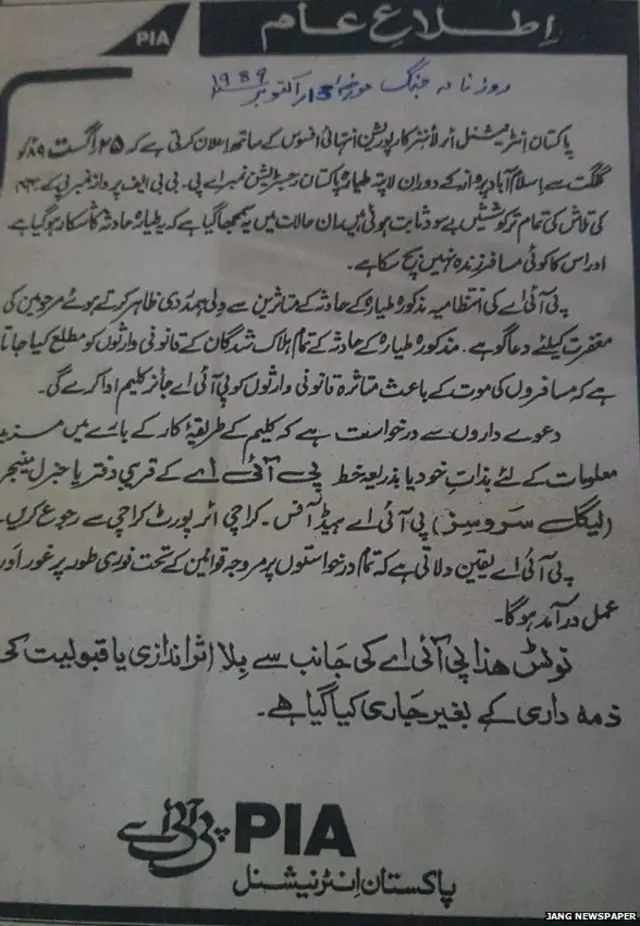 PIA
اِطلاعِ عام
روزنامہ جنگ مورخہ 13 اکتوبر 1989
پاکستان انٹرنیشنل ائرلائنز کارپوریشن انتہائی افسوس کے ساتھ اعلان کرتی ہے کہ ۲۵ اگست ۸۹ کو
گلگت سے اسلام آباد پرواز کے دوران لاپتہ طیارہ پاکستان رجسٹریشن نمبر اے پی۔ بی بی ایف پرواز نمبر پی کے
کی تلاش کی تمام تر کوششیں بے سود ثابت ہوئی ہیں ان حالات میں یہ سمجھا گیا ہے کہ یہ طیارہ حادثہ کا شکار ہوگیا ہے
اور اس کا کوئی مسافر زندہ نہیں بچ سکا ہے۔
پی آئی اے کی انتظامیہ مذکورہ طیارہ کے حادثہ کے متاثرین سے دلی ہمدردی ظاہر کرتے ہوئے مرحومین کی
مغفرت کیلئے دعاگو ہے۔ مذکورہ طیارہ کے حادثہ کے تمام ہلاک شدگان کے قانونی وارثوں کو مطلع کیا جاتا
ہے کہ مسافروں کی موت کے باعث متاثرہ قانونی وارثوں کو پی آئی اے جائز کلیم ادا کرے گی۔
دعوے داروں سے درخواست ہے کہ کلیم کے طریقۂ کار کے بارے میں مزید
معلومات کے لئے بذاتِ خود یا بذریعہ خط پی آئی اے کے قریبی دفتر یا جنرل منیجر
(لیگل سروسز) پی آئی اے ہیڈ آفس۔ کراچی ائرپورٹ کراچی سے رجوع کریں۔
پی آئی اے یقین دلاتی ہے کہ تمام درخواستوں پر مروجہ قوانین کے تحت فوری طور پر غور اور
عمل درآمد ہوگا۔
نوٹس ھذا پی آئی اے کی جانب سے بِلا اثر اندازی یا قبولیت کی
ذمہ داری کے بغیر جاری کیا گیا ہے۔
پی آئی اے PIA
پاکستان انٹرنیشنل
JANG NEWSPAPER